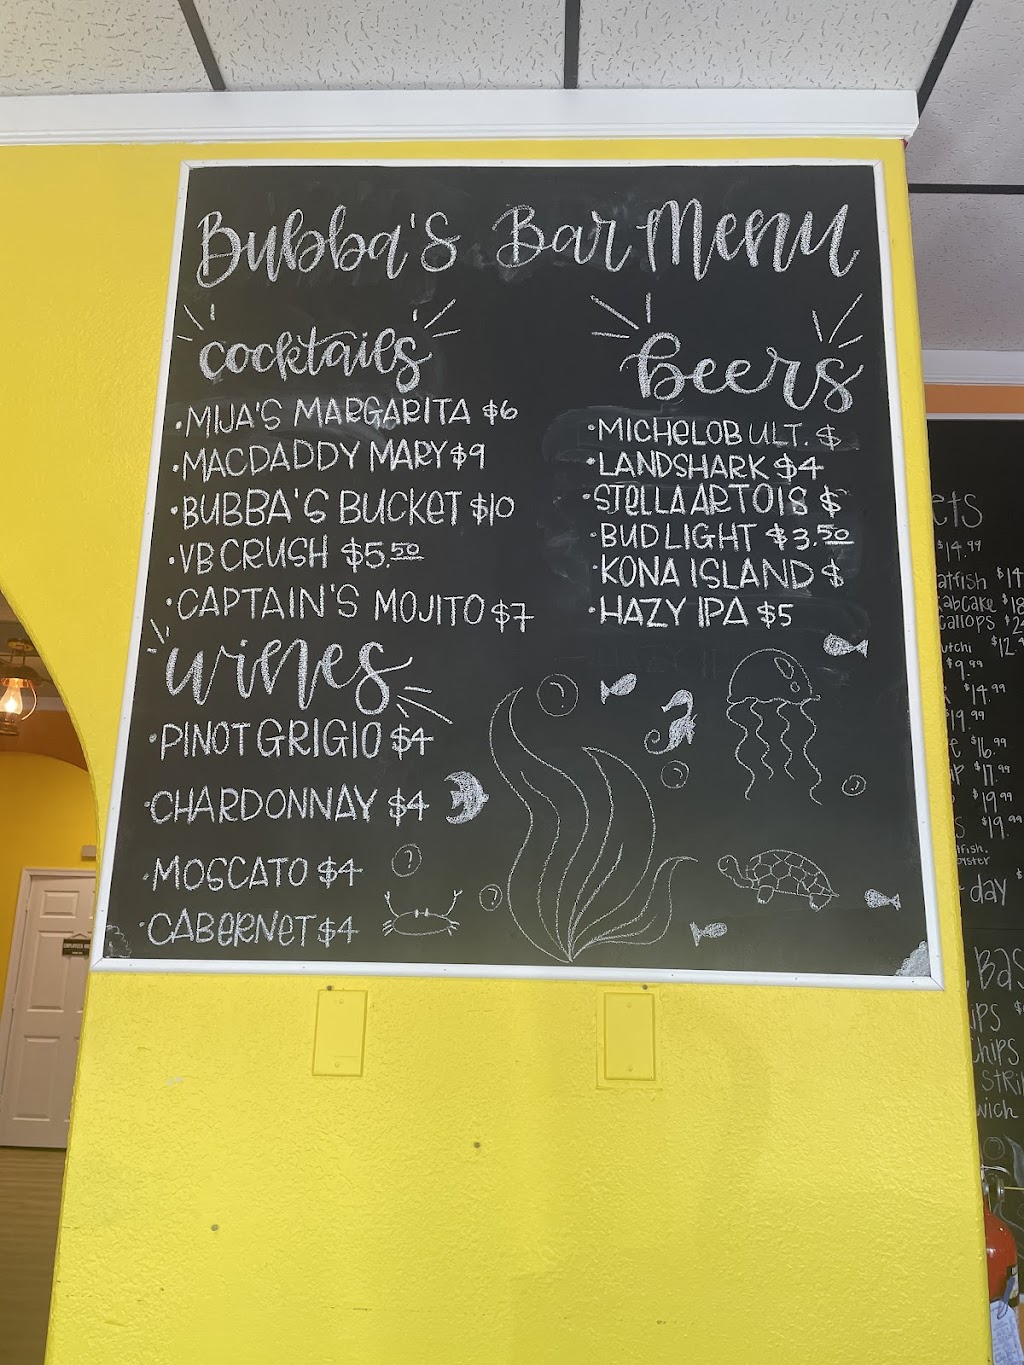 Bubba's Bar Menu
cocktails
•MIJA'S MARGARITA $6
•MACDADDY MARY $9
•BUBBA'S BUCKET $10
•VB CRUSH $5.50
•CAPTAIN'S MOJITO $7
wines
•PINOT GRIGIO $4
•CHARDONNAY $4
•MOSCATO $4
•CABERNET $4
beers
•MICHELOB ULT. $
•LANDSHARK $4
•STELLA ARTOIS $
•BUD LIGHT $3.50
•KONA ISLAND $
•HAZY IPA $5
ets
$14.99
atfish $14
abcake $18
callops $2
utchi $12.
$9.99
$14.99
$19.99
$16.99
$17.99
$19.99
S $19.99
lfish.
day $
BAS
IPS $
Chips
STRI
wich